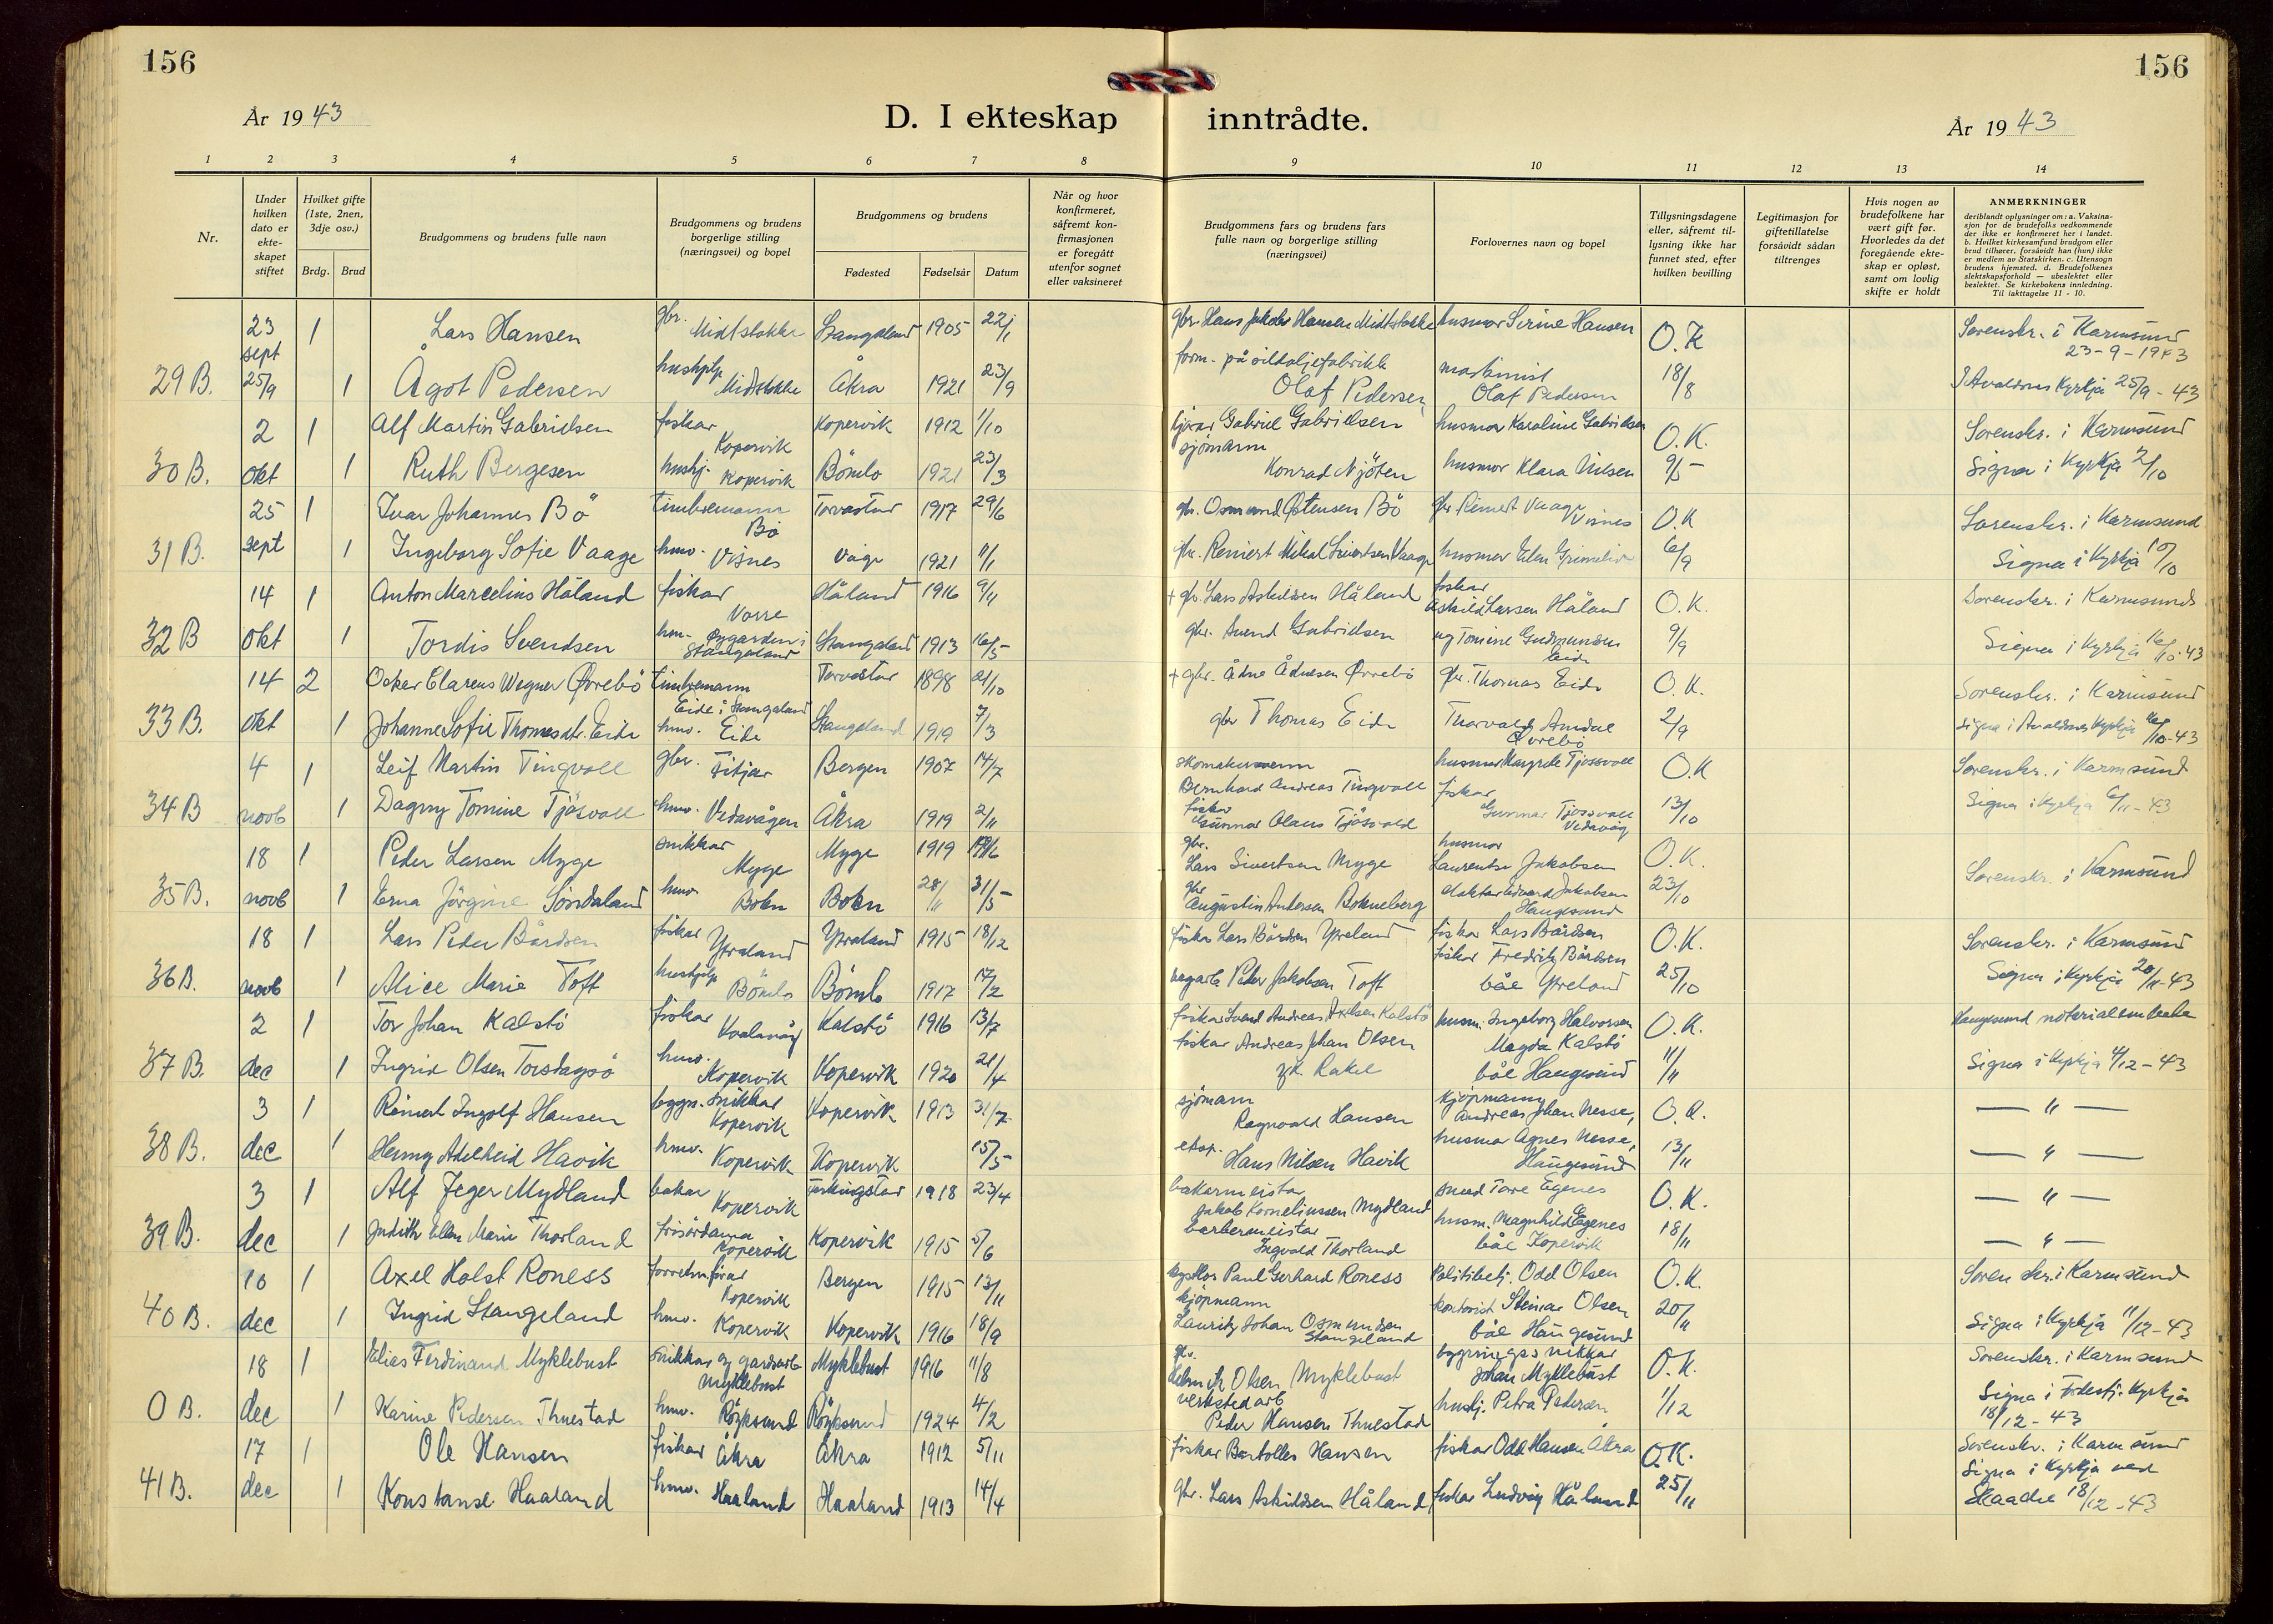 156
156
År 1943
D. I ekteskap inntrådte.
År 1943
1 2 3 4 5 6 7 8 9 10 11 12 13 14
Nr.
Under hvilken dato er ekte-skapet stiftet
Hvilket gifte (1ste, 2nen, 3dje osv.)
Brdg. Brud
Brudgommens og brudens fulle navn
Brudgommens og brudens borgerlige stilling (næringsvei) og bopel
Brudgommens og brudens
Fødested Fødselsår Datum
Når og hvor konfirmeret, såfremt kon-firmasjonen er foregått utenfor sognet eller vaksineret
Brudgommens fars og brudens fars fulle navn og borgerlige stilling (næringsvei)
Forlovernes navn og bopel
Tillysningsdagene eller, såfremt til-lysning ikke har funnet sted, efter hvilken bevilling
Legitimasjon for giftetillatelse forsåvidt sådan tiltrenges
Hvis nogen av brudefolkene har vært gift før. Hvorledes da det foregående ekte-skap er opløst, samt om lovlig skifte er holdt
ANMERKNINGER
deriblandt oplysninger om: a. Vaksina-sjon for de brudefolks vedkommende der ikke er konfirmeret her i landet. b. Hvilket kirkesamfund brudgom eller brud tilhører, forsåvidt han (hun) ikke er medlem av Statskirken. c. Utensogn brudens hjemsted. d. Brudefolkenes slektskapsforhold — ubeslektet eller beslektet. Se kirkebokens innledning. Til iakttagelse 11 - 10.
23 sept 1 Lars Hansen gbr. Midtstokke Stangeland 1905 22/1 gbr. Hans Jakob Hansen Midtstokke husmor Serine Hansen O.K Sorenskr. i Karmsund 23-9-1943
29 B. 25/9 1 Ågot Pedersen hushjelp Midtstokke Åkra 1921 23/9 form. på sildoljefabrikk Olaf Pedersen maskinist Olaf Pedersen 18/8 I Avaldsnes Kyrkja 25/9-43
2 1 Alf Martin Gabrielsen fiskar Kopervik Kopervik 1912 1/10 Gabriel Gabrielsen husmor Karoline Gabrielsen O.K. Sorenskr. i Karmsund
30 B. okt 1 Ruth Bergesen hushj. Kopervik Bömlo 1921 23/3 sjömann Konrad Njöten husmor Klara Nilsen 9/5 Signa i Kyrkja 2/10
25 1 Ivar Johannes Bö timbremann Bö Torvastad 1917 29/6 gbr. Osmund Östensen Bö gbr Reinert Vaage Visnes O.K Sorenskr. i Karmsund
31 B. sept 1 Ingeborg Sofie Vaage hmv. Visnes Våge 1921 11/1 gbr. Reniert Mikal Sivertsen Vaage husmor Elen 6/9 Signa i Kyrkja 10/10
14 1 Anton Marcelius Håland fiskar Vorre Håland 1916 9/11 + gbr. Lars Askildsen Håland fiskar Askild Larsen Håland O.K. Sorenskr. i Karmsund
32 B okt 1 Tordis Svendsen hm. Øygarden i Stangeland Stangeland 1913 16/5 gbr. Svend Gabrielsen og Tomine Gudmundsen Eide 9/9 Signa i Kyrkja 16/10-43
14 2 Oskar Clarens Wegner Øvrebö timbremann Eide i Stangeland Torvastad 1898 21/10 + gbr. Ådne Ådnesen Øvrebö gbr. Thomas Eide O.K. Sorenskr. i Karmsund
33 B. okt 1 Johanne Sofie Thomasdtr. Eide hmv. Eide Stangeland 1919 7/3 gbr Thomas Eide Thorvald Amdal Øvrebö 2/9 Signa i Avaldsnes Kyrkja 16/10-43
4 1 Leif Martin Tingvoll gbr. Fitjar Bergen 1907 14/7 Bernhard Andreas Tingvoll husmor Margrete Tjossvoll O.K Sorenskr. i Karmsund
34 B novb 1 Dagny Tomine Tjösvoll hmv. Vedavågen Åkra 1919 2/11 fiskar Gunnar Olaus Tjösvold fiskar Gunnar Tjossvoll Vedavåg 13/10 Signa i Kyrkja 6/11-43
18 1 Peder Larsen Myge snikkar Myge Myge 1919 gbr. Lars Sivertsen Myge husmor Laurentse Jakobsen O.K. Sorenskr. i Karmsund
35 B. novb 1 Erna Jörgine Söndaland hmv. Bokn Bokn 28/11 31/5 gbr Augustin Andersen Bokneberg Edvard Jakobsen Haugesund 23/10
18 1 Lars Peder Bårdsen fiskar Ytreland Ytreland 1915 18/12 fiskar Lars Bårdsen Ytreland fiskar Lars Bårdsen O.K. Sorenskr. i Karmsund
36 B. novb 1 Alice Marie Toft hushjelp Bömlo Bömlo 1917 17/2 Peder Jakobsen Toft fiskar Fredrik Bårdsen båe Ytreland 25/10 Signa i Kyrkja 20/11-43
2 1 Tor Johan Kalstö fiskar Kvalavåg Kalstö 1916 13/7 fiskar Svend Andreas Axelsen Kalstö husm. Ingeborg Halvorsen O.K. Haugesund notarialembete
37 B. dec 1 Ingrid Olsen Torsdagsö hmv. Kopervik Kopervik 1920 21/4 fiskar Andreas Johan Olsen Magda Kalstö båe Haugesund 11/11 Signa i Kyrkja 4/12-43
3 1 Reinert Ingolf Hansen bygn. snikkar Kopervik Kopervik 1913 31/7 sjömann Ragnvald Hansen kjöpmann Andreas Johan Nesse, O.K. — " —
38 B. dec 1 Henny Adelheid Havik hmv. Kopervik Kopervik 15/5 eksp. Hans Nilsen Havik husmor Agnes Nesse, Haugesund 13/11 — " —
3 1 Alf Jeger Mydland bakar Kopervik Ferkingstad 1918 23/4 bakarmeistar Jakob Korneliussen Mydland smed Tore Egenes O.K. — " —
39 B. dec 1 Judith Ellen Marie Thorland frisördama Kopervik Kopervik 1915 5/6 barbermeistar Ingvald Thorland husm. Magnhild Egenes båe Kopervik 18/11 — " —
10 1 Axel Holst Roness forretn.förar Kopervik Bergen 1915 13/11 Paul Gerhard Roness Politibetj. Odd Olsen O.K. Sorenskr. i Karmsund
40 B. dec 1 Ingrid Stangeland hmv. Kopervik Kopervik 1916 18/9 kjöpmann Lauritz Johan Osmundsen Stangeland kontorist Steinar Olsen båe Haugesund 20/11 Signa i Kyrkja 11/12-43
18 1 Elias Ferdinand Myklebust snikkar og gardsarb Myklebust Myklebust 1916 11/8 gbr. Helmik Olsen Myklebust bygningssnikkar Johan Myklebust O.K. Sorenskr. i Karmsund
0 B. dec 1 Karine Pedersen Thuestad hmv. Röyksund Röyksund 1924 4/2 verkstedarb Peder Hansen Thuestad hushj. Petra Pedersen 1/12 Signa i Kyrkja 18/12-43
17 1 Ole Hansen fiskar Åkra Åkra 1912 5/11 fiskar Bartolles Hansen fiskar Odd Hansen Åkra O.K. Sorenskr. i Karmsund
41 B. dec 1 Konstanse Haaland hmv. Haaland Haaland 1913 14/4 gbr. Lars Askildsen Håland fiskar Ludvig Håland 25/11 Signa i Kyrkja ved Skaadel 18/12-43